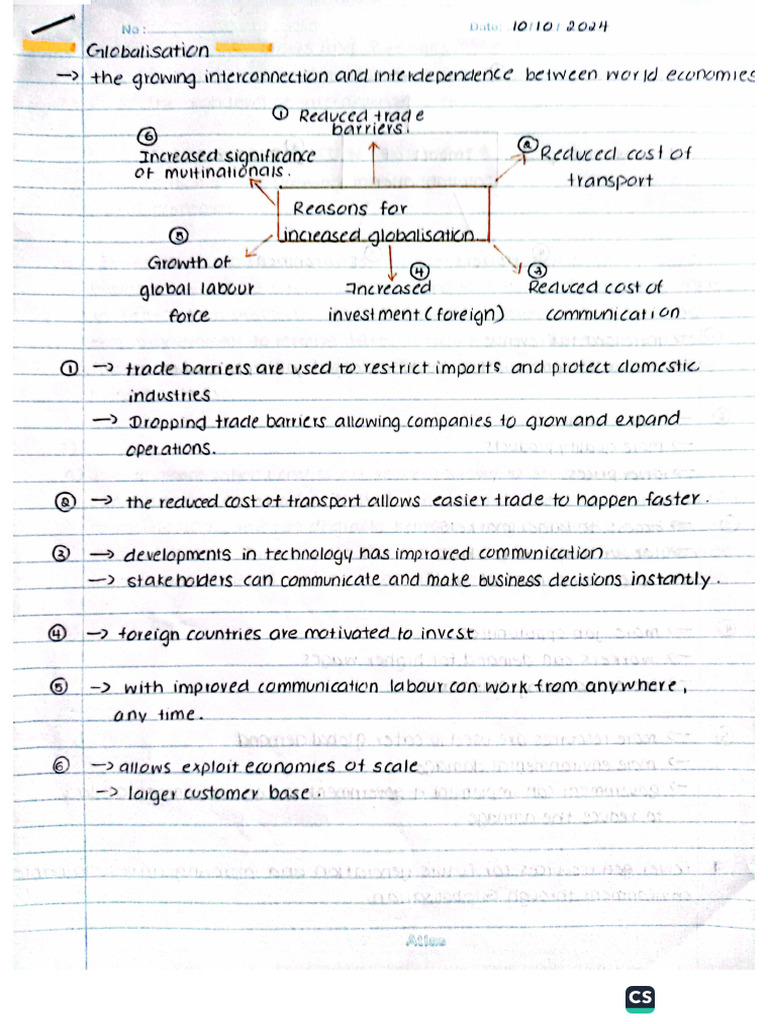 No: Date: 10/10/2024
Globalisation
→ the growing interconnection and interdependence between world economies
① Reduced trade
barriers.
⑥
Increased significance
of multinationals.
② Reduced cost of
transport
Reasons for
increased globalisation
⑤
Growth of
global labour
force
④
Increased
investment (foreign)
③
Reduced cost of
communication
① → trade barriers are used to restrict imports and protect domestic
industries
→ Dropping trade barriers allowing companies to grow and expand
operations.
② → the reduced cost of transport allows easier trade to happen faster.
③ → developments in technology has improved communication
→ stakeholders can communicate and make business decisions instantly.
④ → foreign countries are motivated to invest
⑤ → with improved communication labour can work from anywhere,
any time.
⑥ → allows exploit economies of scale
→ larger customer base.
Atlas
CS